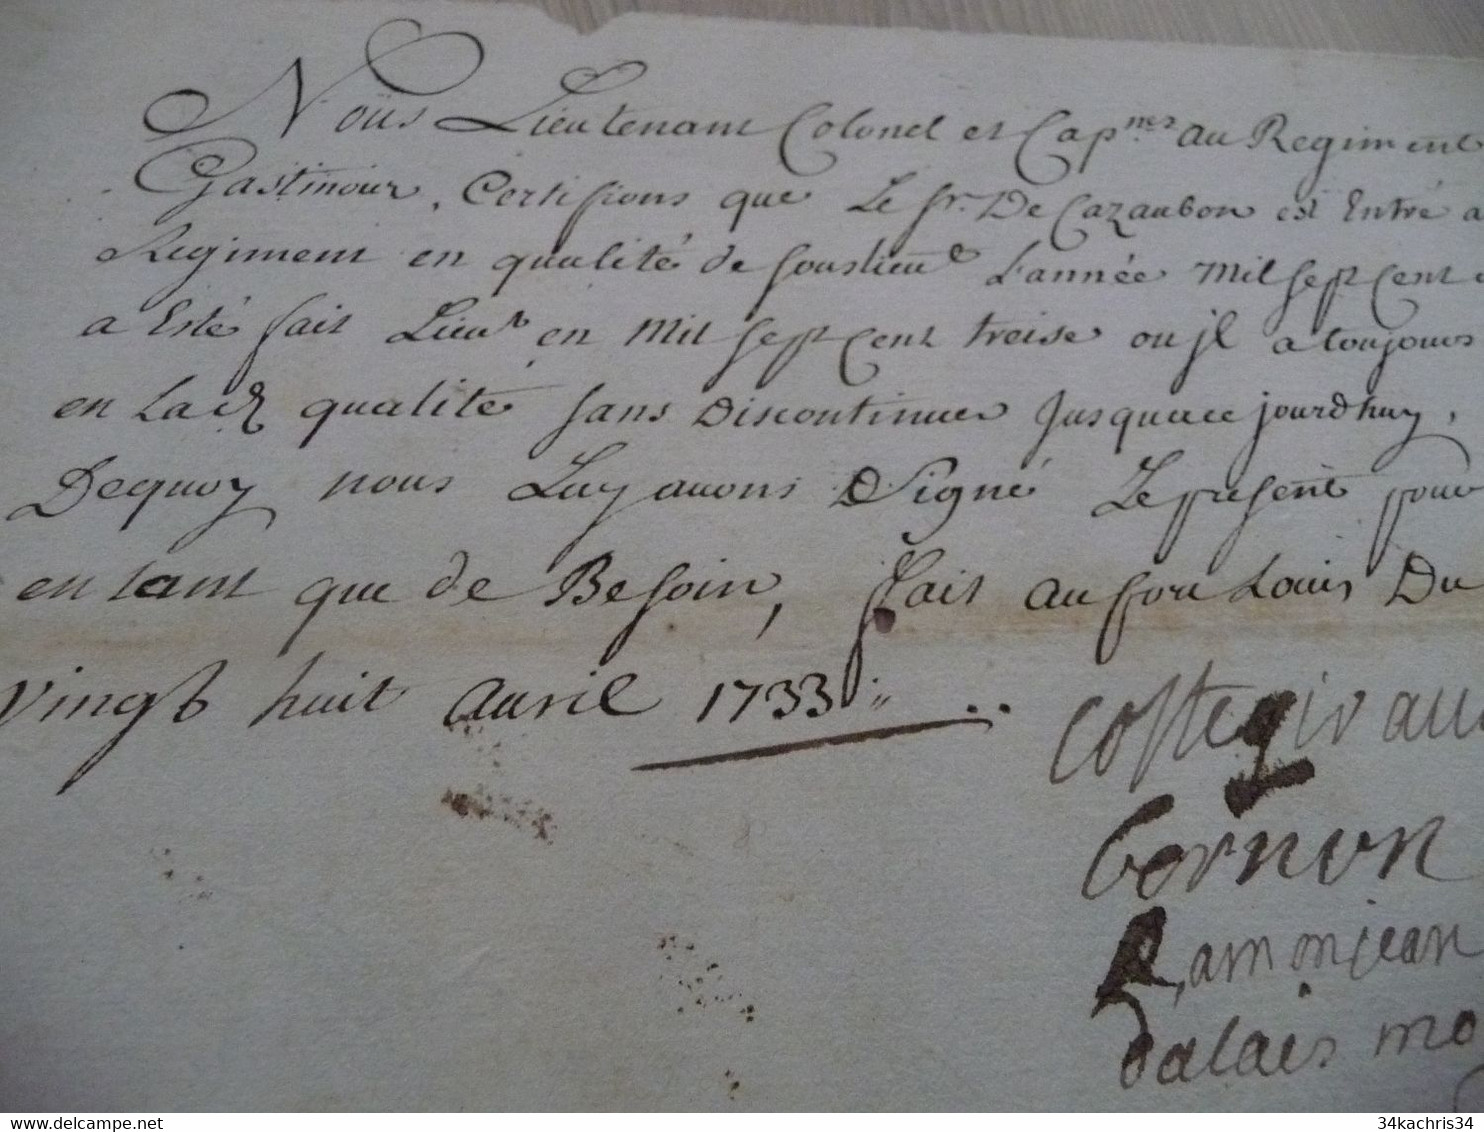 Noüs Lieutenant Colonel et Cap.nes au Regiment
Gastinoix, Certifions que Le Sr. De Cazaubon est Entré a
Regiment en qualité de souslieut L'année Mil sept Cent
a Esté fait Lieut en Mil sept Cent treise ou jl a toujours
en Lad. qualité sans Discontinuer Jusqua ce jourdhuy,
Dequoy nous Luy auons Signé Le present pour
en tant que de Besoin, fait au fort Louis Du
vingt huit auril 1733
Costegirau
Cornun
Ramonjean
Dalais mo
34kachris34